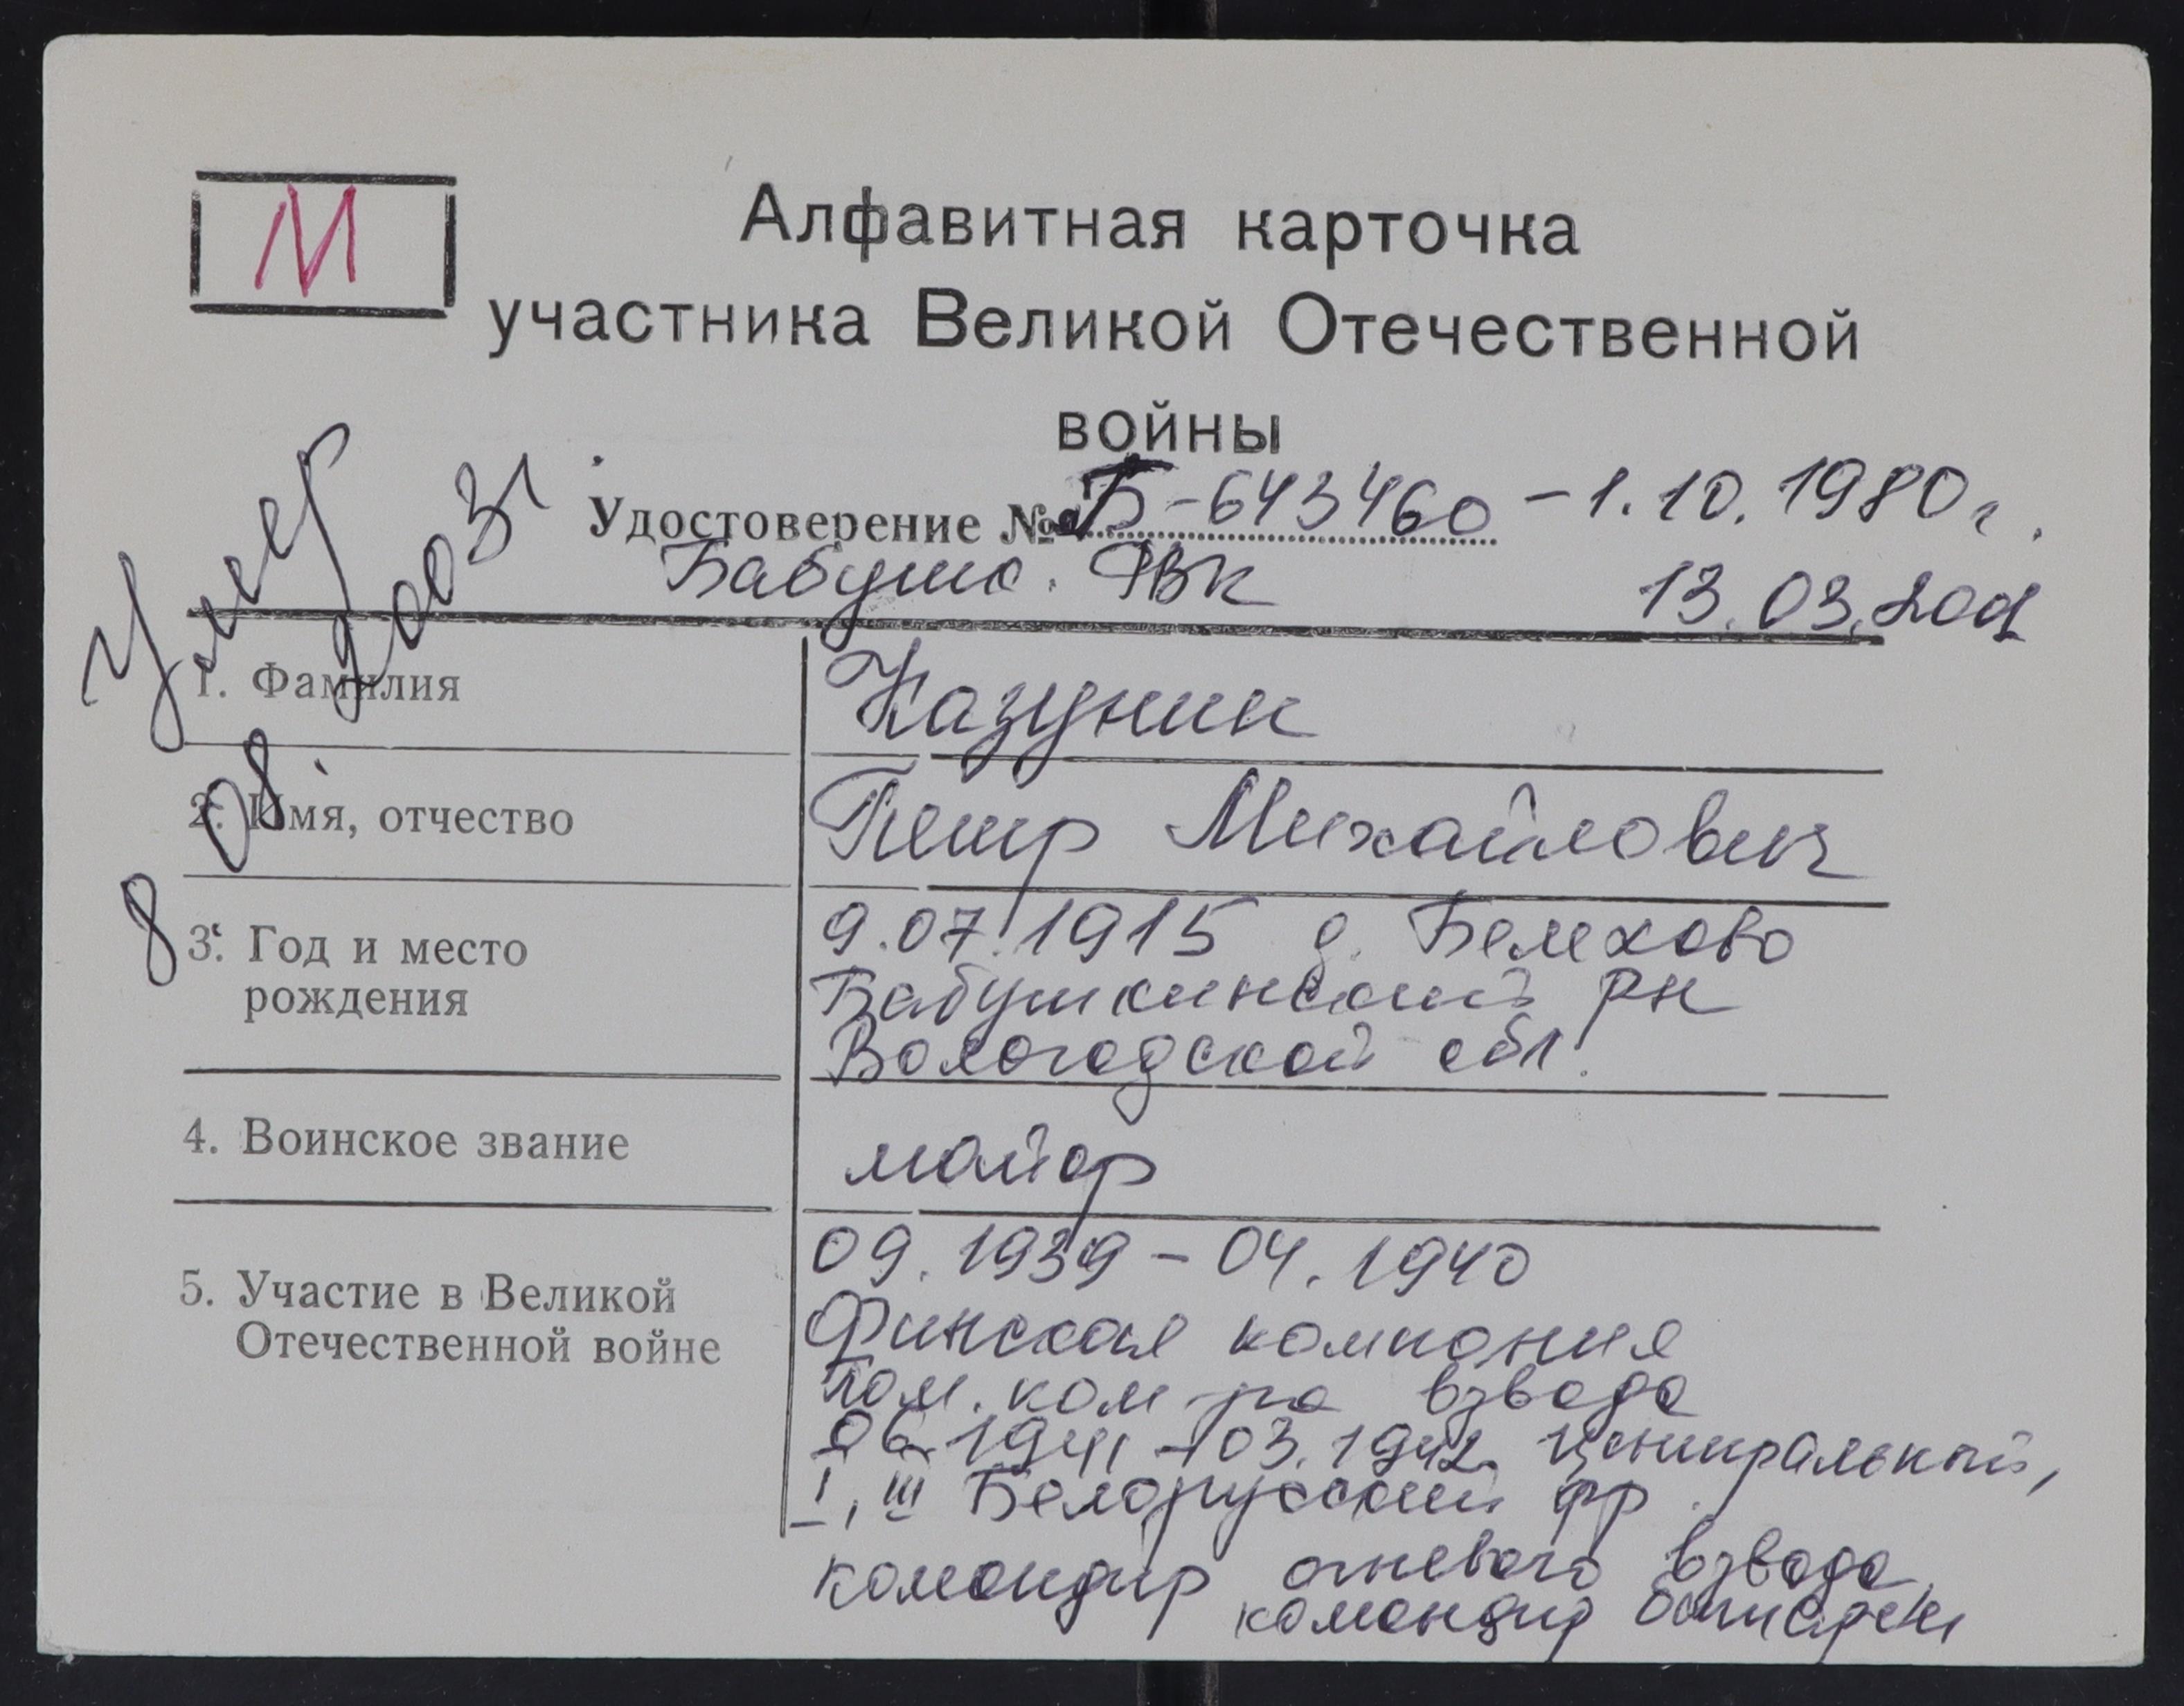 М
Алфавитная карточка
участника Великой Отечественной
войны
Удостоверение № Б-643460 - 1.10.1980г.
Бабушк. РВК 13.03.2001
Умер
8 08. 2003г
1. Фамилия
Казунин
2. Имя, отчество
Петр Михайлович
3. Год и место
рождения
9.07.1915 д. Белехово
Бабушкинский рн
Вологодской обл.
4. Воинское звание
майор
5. Участие в Великой
Отечественной войне
09.1939 - 04.1940
Финская компония
пом. ком-ра взвода
06.1941 - 03.1942 Центральный,
I, III Белорусский фр.
командир огневого взвода,
командир батареи